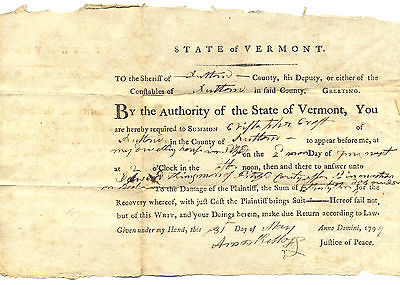 STATE OF VERMONT.
TO the Sheriff of Rutland County, his Deputy, or either of the
Constables of Rutland in said County, GREETING.
BY the Authority of the State of Vermont, You
are hereby required to SUMMON Christopher Croft of
in the County of Rutland to appear before me, at
my Dwelling house in on the 2 Day of June next
at 2 o'Clock in the noon, then and there to answer unto
To the Damage of the Plaintiff, the Sum of for the
Recovery whereof, with just Cost the Plaintiff brings Suit Hereof fail not,
but of this WRIT, and your Doings herein, make due Return according to Law.
Given under my Hand, this 31 Day of May Anno Domini, 179
Justice of Peace.